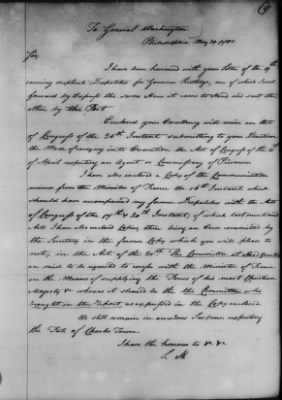 To General Washington
Philadelphia May 29 1780
Sir,
I have been honored with your Letter of the 19th
covering duplicate Dispatches for Governor Rutledge, one of which I sent
forward by Express the same Hour it came to Hand and sent the
other by this Post
Enclosed your Excellency will receive an Act
of Congress of the 26th Instant submitting to your Direction
the Mode of carrying into Execution the Act of Congress of the
of April respecting an Agent or Commissary of Prisoners
I have also enclosed a Copy of the Communications
received from the Minister of France the 16th Instant which
should have accompanied my former Dispatches with the Acts
of Congress of the 19th & 20th Instant; of which last mentioned
Act I have also enclosed Copies, there being an Error committed by
the Secretary in the former Copy which you will please to
note, in the Act of the 20th The Committee at Head quarters
are said to be requested to confer with the Minister of France
on the Means of supplying the Forces of his most Christian
Majesty &c whereas it should be the Committee who
brought in the Report as expressed in the Copy enclosed
We still remain in anxious Suspense respecting
the Fate of Charles Town
I have the honour to be &c &c
S. H